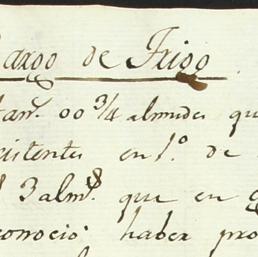 Cargo de Trigo
fan.s 00 3/4 almudes qu
xistentes en 1.º de
3 alm.s que en
conoció haber pro